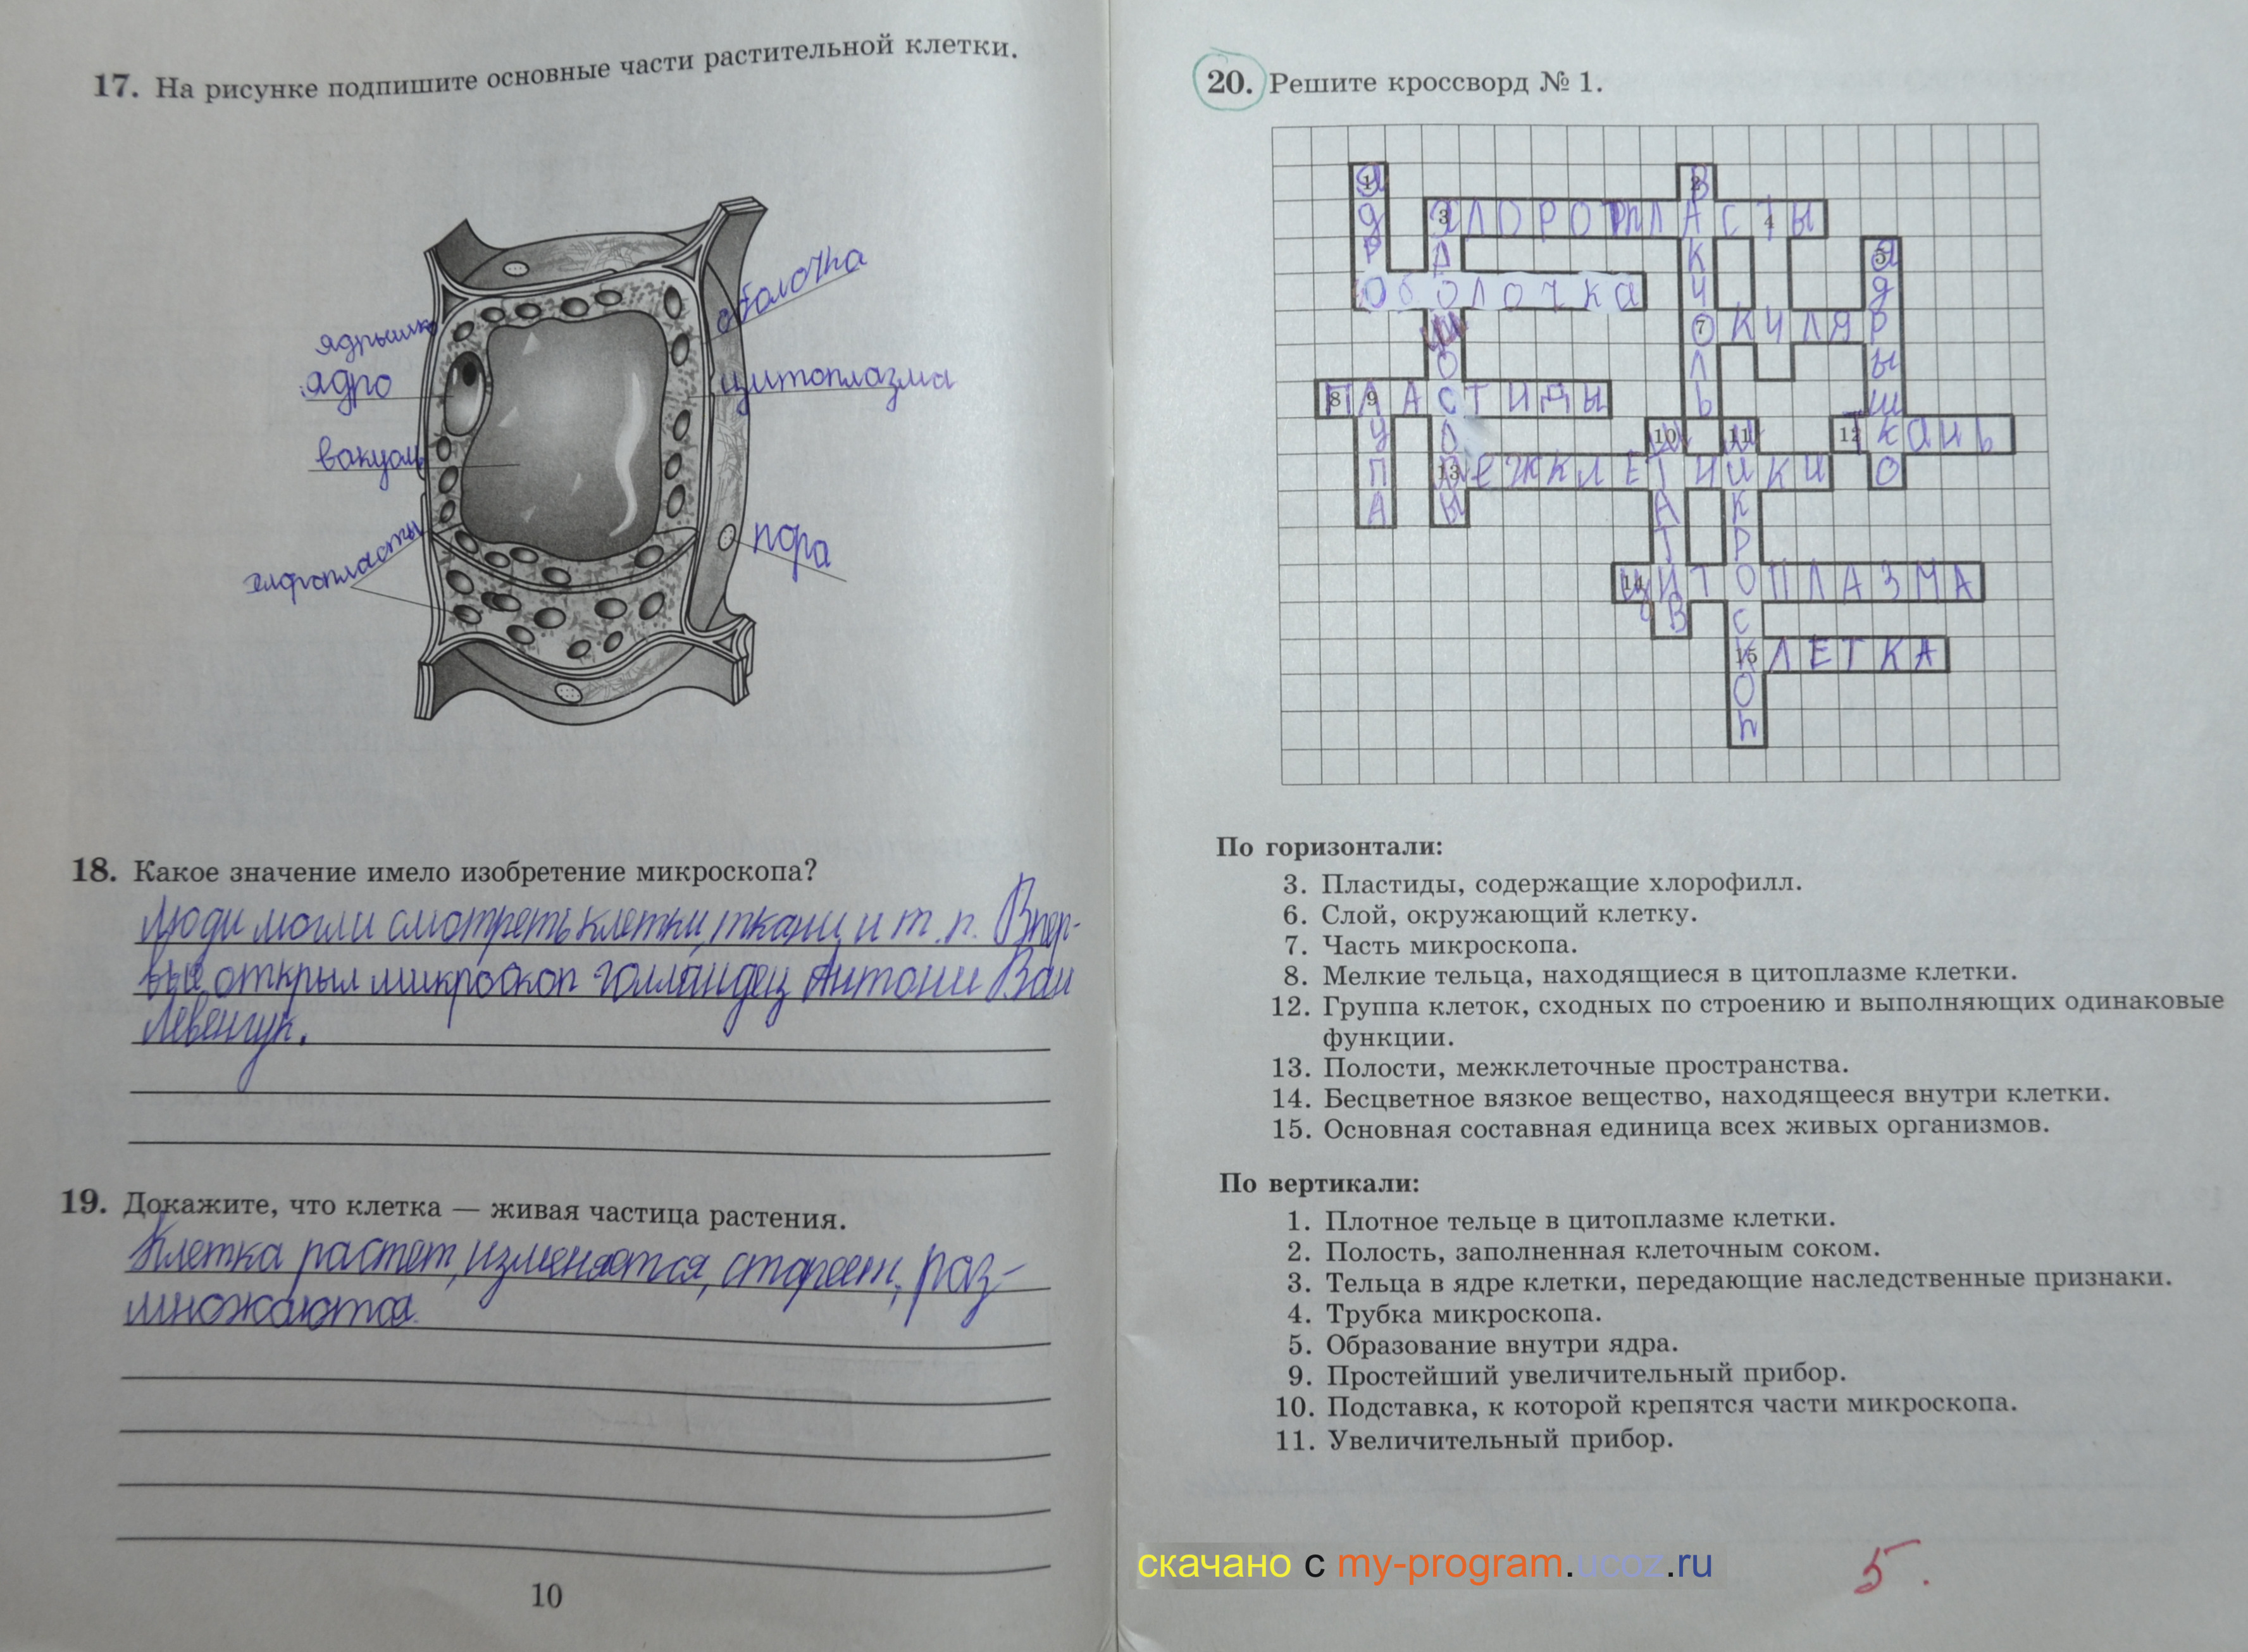 17. На рисунке подпишите основные части растительной клетки.
оболочка
ядрышко
ядро
цитоплазма
вакуоль
пора
хлоропласты
18. Какое значение имело изобретение микроскопа?
Люди могли смотреть клетки, ткани и т. п. Впер-
вые открыл микроскоп голландец Антони Ван
Левенгук.
19. Докажите, что клетка — живая частица растения.
Клетка растет, изменяется, стареет, раз-
множаются.
10
20. Решите кроссворд № 1.
1 ЯДРО
2 ВАКУОЛЬ
3 ХЛОРОПЛАСТЫ
3 ХЛОМОСОМЫ
4
5 ЯДРЫШКО
Оболочка
7 ОКУЛЯР
8 ПЛАСТИДЫ
9 ЛУПА
10 ШТАТИВ
11 МИКРОСКОП
12 Ткань
13 МЕЖКЛЕТНИКИ
14 ЦИТОПЛАЗМА
15 КЛЕТКА
По горизонтали:
3. Пластиды, содержащие хлорофилл.
6. Слой, окружающий клетку.
7. Часть микроскопа.
8. Мелкие тельца, находящиеся в цитоплазме клетки.
12. Группа клеток, сходных по строению и выполняющих одинаковые
функции.
13. Полости, межклеточные пространства.
14. Бесцветное вязкое вещество, находящееся внутри клетки.
15. Основная составная единица всех живых организмов.
По вертикали:
1. Плотное тельце в цитоплазме клетки.
2. Полость, заполненная клеточным соком.
3. Тельца в ядре клетки, передающие наследственные признаки.
4. Трубка микроскопа.
5. Образование внутри ядра.
9. Простейший увеличительный прибор.
10. Подставка, к которой крепятся части микроскопа.
11. Увеличительный прибор.
скачано с my-program.ucoz.ru
5.